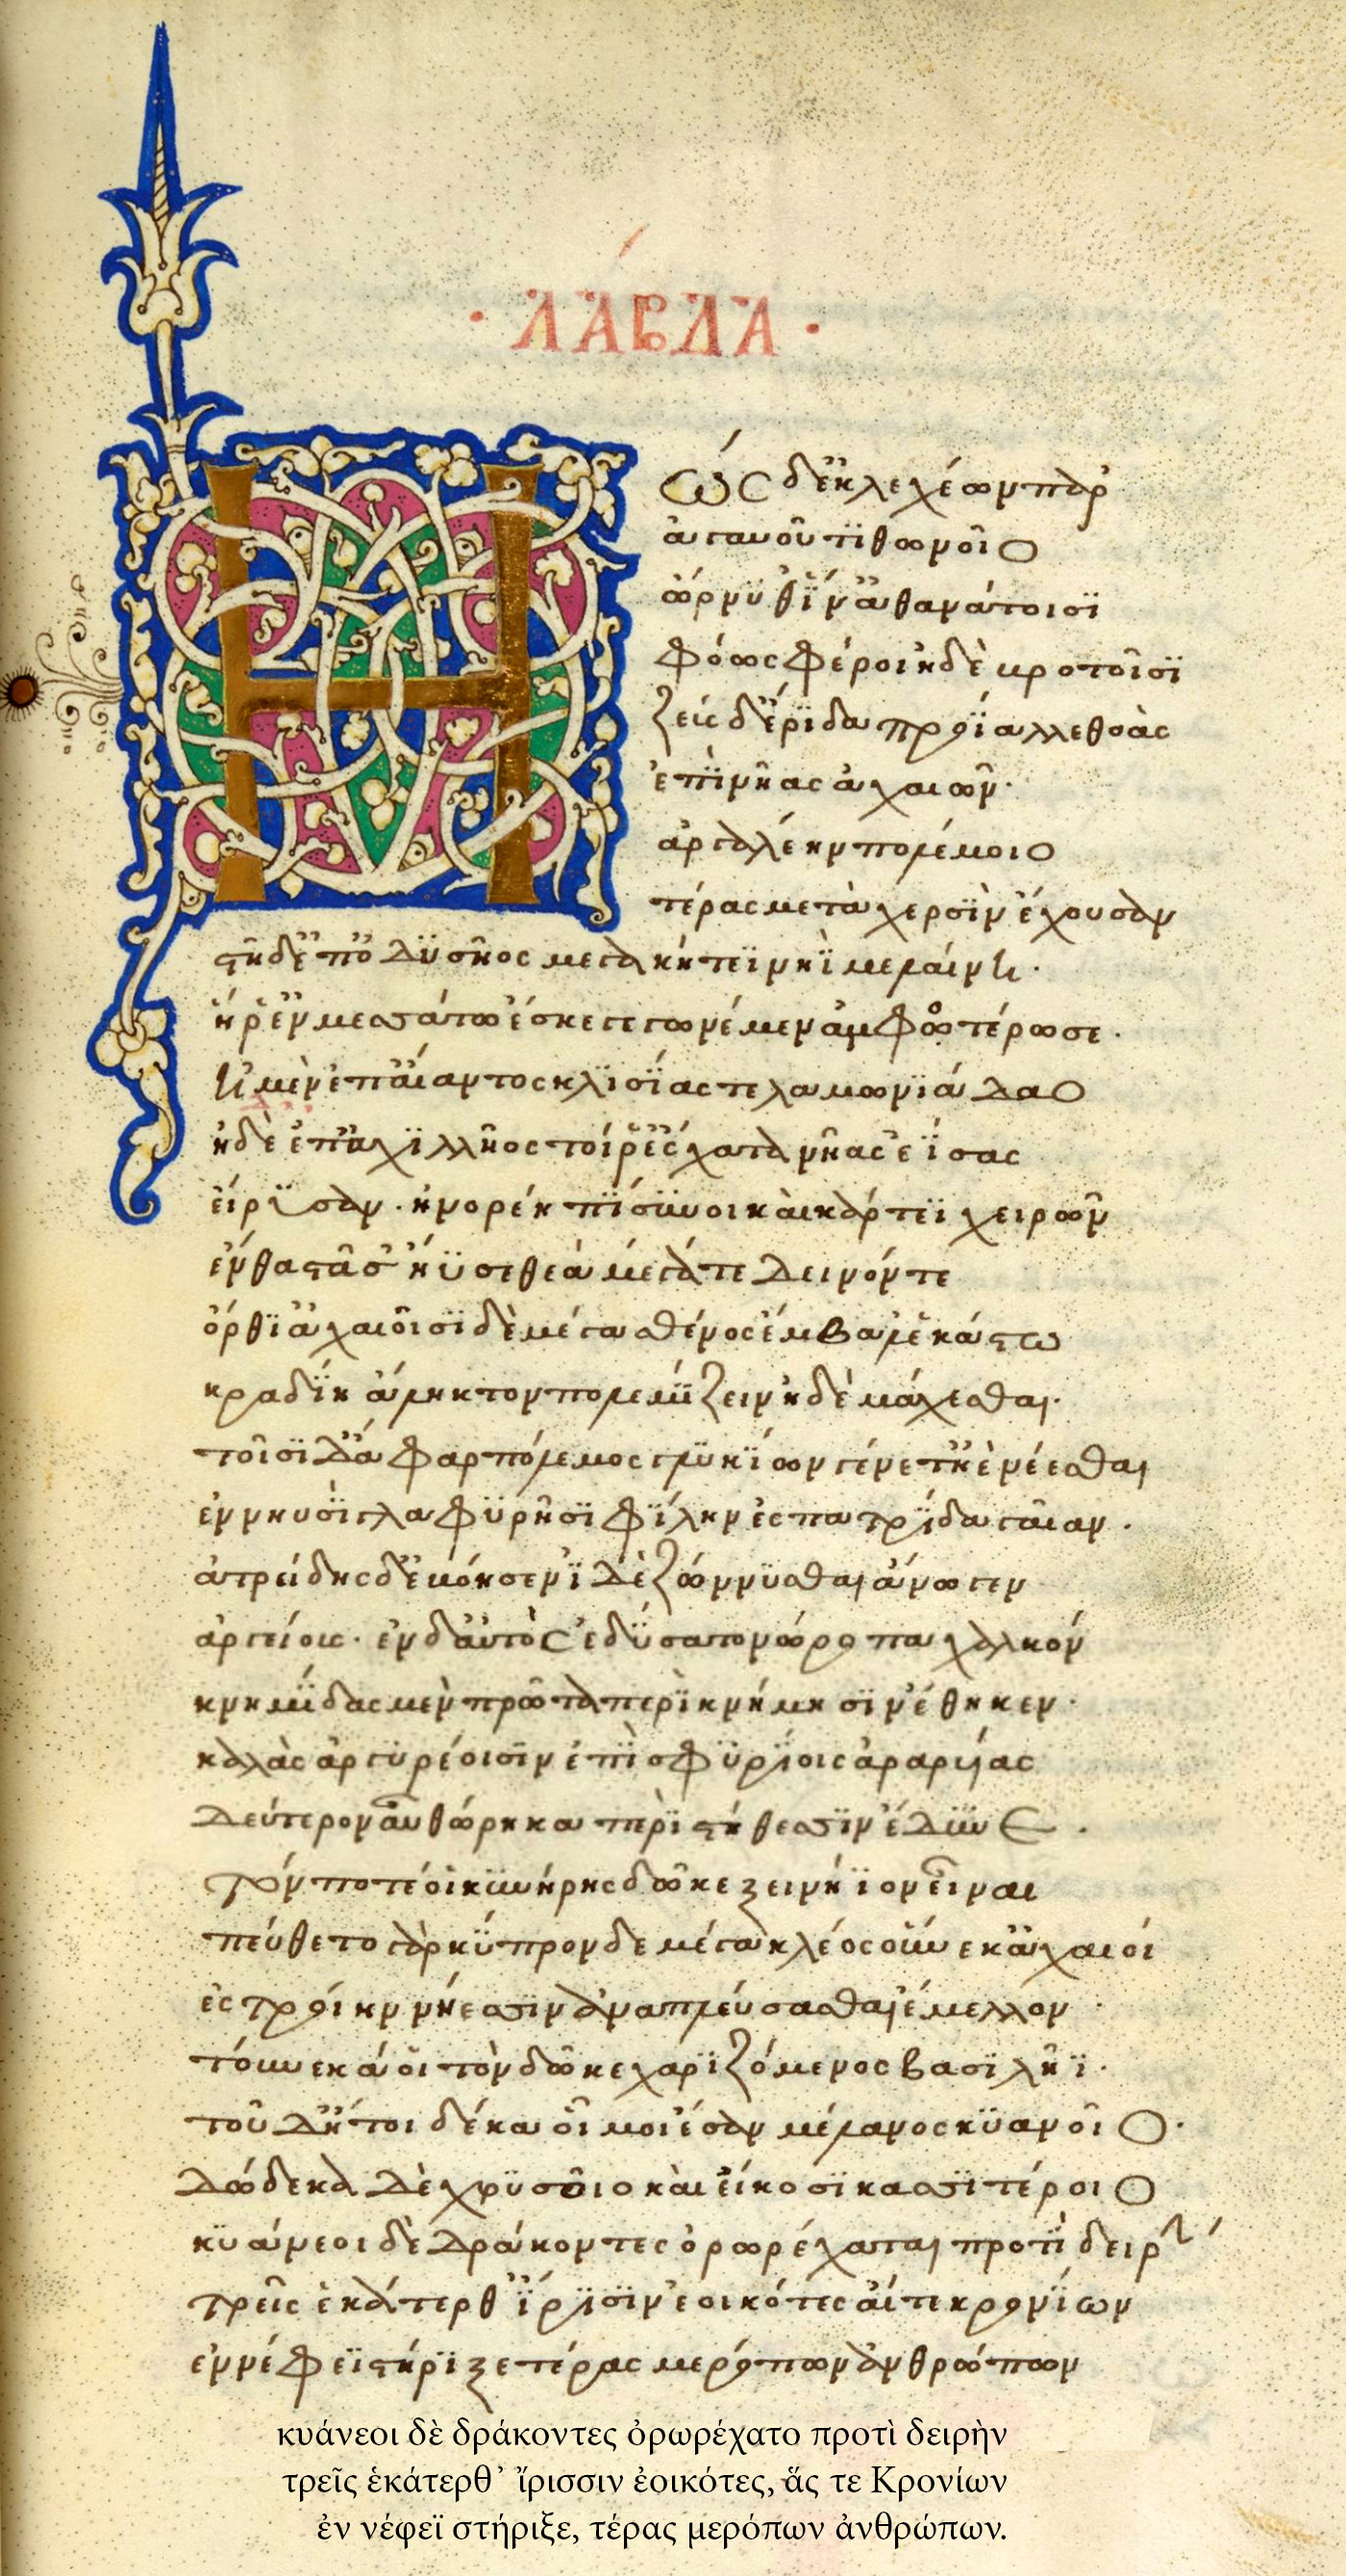 · ΛΆΒΔΑ ·
Ἠὼς δ' ἐκ λεχέων παρ'
ἀγαυοῦ τιθωνοῖο
ὤρνυθ' ἵν' ἀθανάτοισι
φόως φέροι ἠδὲ βροτοῖσι
ζεὺς δ' ἔριδα προΐαλλε θοὰς
ἐπὶ νῆας ἀχαιῶν·
ἀργαλέην πολέμοιο
τέρας μετὰ χερσὶν ἔχουσαν
στῆ δ' ἐπ' ὀδυσῆος μεγακήτεϊ νηῒ μελαίνη·
ἥ ῥ' ἐν μεσσάτω ἔσκε γεγωνέμεν ἀμφοτέρωσε·
ἠμὲν ἐπ' αἴαντος κλισίας τελαμωνιάδαο
ἠδὲ ἐπ' ἀχιλλῆος τοί ῥ' ἔσχατα νῆας ἐΐσας
εἴρυσαν· ἠνορέη πίσυνοι καὶ κάρτεϊ χειρῶν
ἔνθα στᾶσ' ἤϋσε θεὰ μέγα τε δεινόν τε
ὄρθι' ἀχαιοῖσι δὲ μέγα σθένος ἔμβαλ' ἑκάστω
κραδίη ἄλληκτον πολεμίζειν ἠδὲ μάχεσθαι·
τοῖσι δ' ἄφαρ πόλεμος γλυκίων γένετ' ἠὲ νέεσθαι
ἐν νηυσὶ γλαφυρῆσι φίλην ἐς πατρίδα γαῖαν·
ἀτρείδης δ' ἐβόησεν ἰδὲ ζώννυσθαι ἄνωγεν
ἀργείους· ἐν δ' αὐτὸς ἐδύσατο νώροπα χαλκόν
κνημῖδας μὲν πρῶτα περὶ κνήμησιν ἔθηκεν·
καλὰς ἀργυρέοισιν ἐπὶ σφυρίοις ἀραρυίας
δεύτερον αὖ θώρηκα περὶ στήθεσσιν ἔδυνε·
τόν ποτέ οἱ κινύρης δῶκε ξεινήϊον εἶναι
πεύθετο γὰρ κύπρονδε μέγα κλέος οὕνεκ' ἀχαιοί
ἐς τροίην νήεσσιν ἀναπλεύσασθαι ἔμελλον·
τούνεκά οἱ τὸν δῶκε χαριζόμενος βασιλῆϊ·
τοῦ δ' ἤτοι δέκα οἶμοι ἔσαν μέλανος κυάνοιο·
δώδεκα δὲ χρυσοῖο καὶ εἴκοσι κασσιτέροιο
κυάνεοι δὲ δράκοντες ὀρωρέχαται προτὶ δειρήν
τρεῖς ἑκάτερθ' ἴρισιν ἐοικότες αἵ τε κρονίων
ἐν νέφεϊ στήριξε τέρας μερόπων ἀνθρώπων
κυάνεοι δὲ δράκοντες ὀρωρέχατο προτὶ δειρὴν
τρεῖς ἑκάτερθ᾽ ἴρισσιν ἐοικότες, ἅς τε Κρονίων
ἐν νέφεϊ στήριξε, τέρας μερόπων ἀνθρώπων.